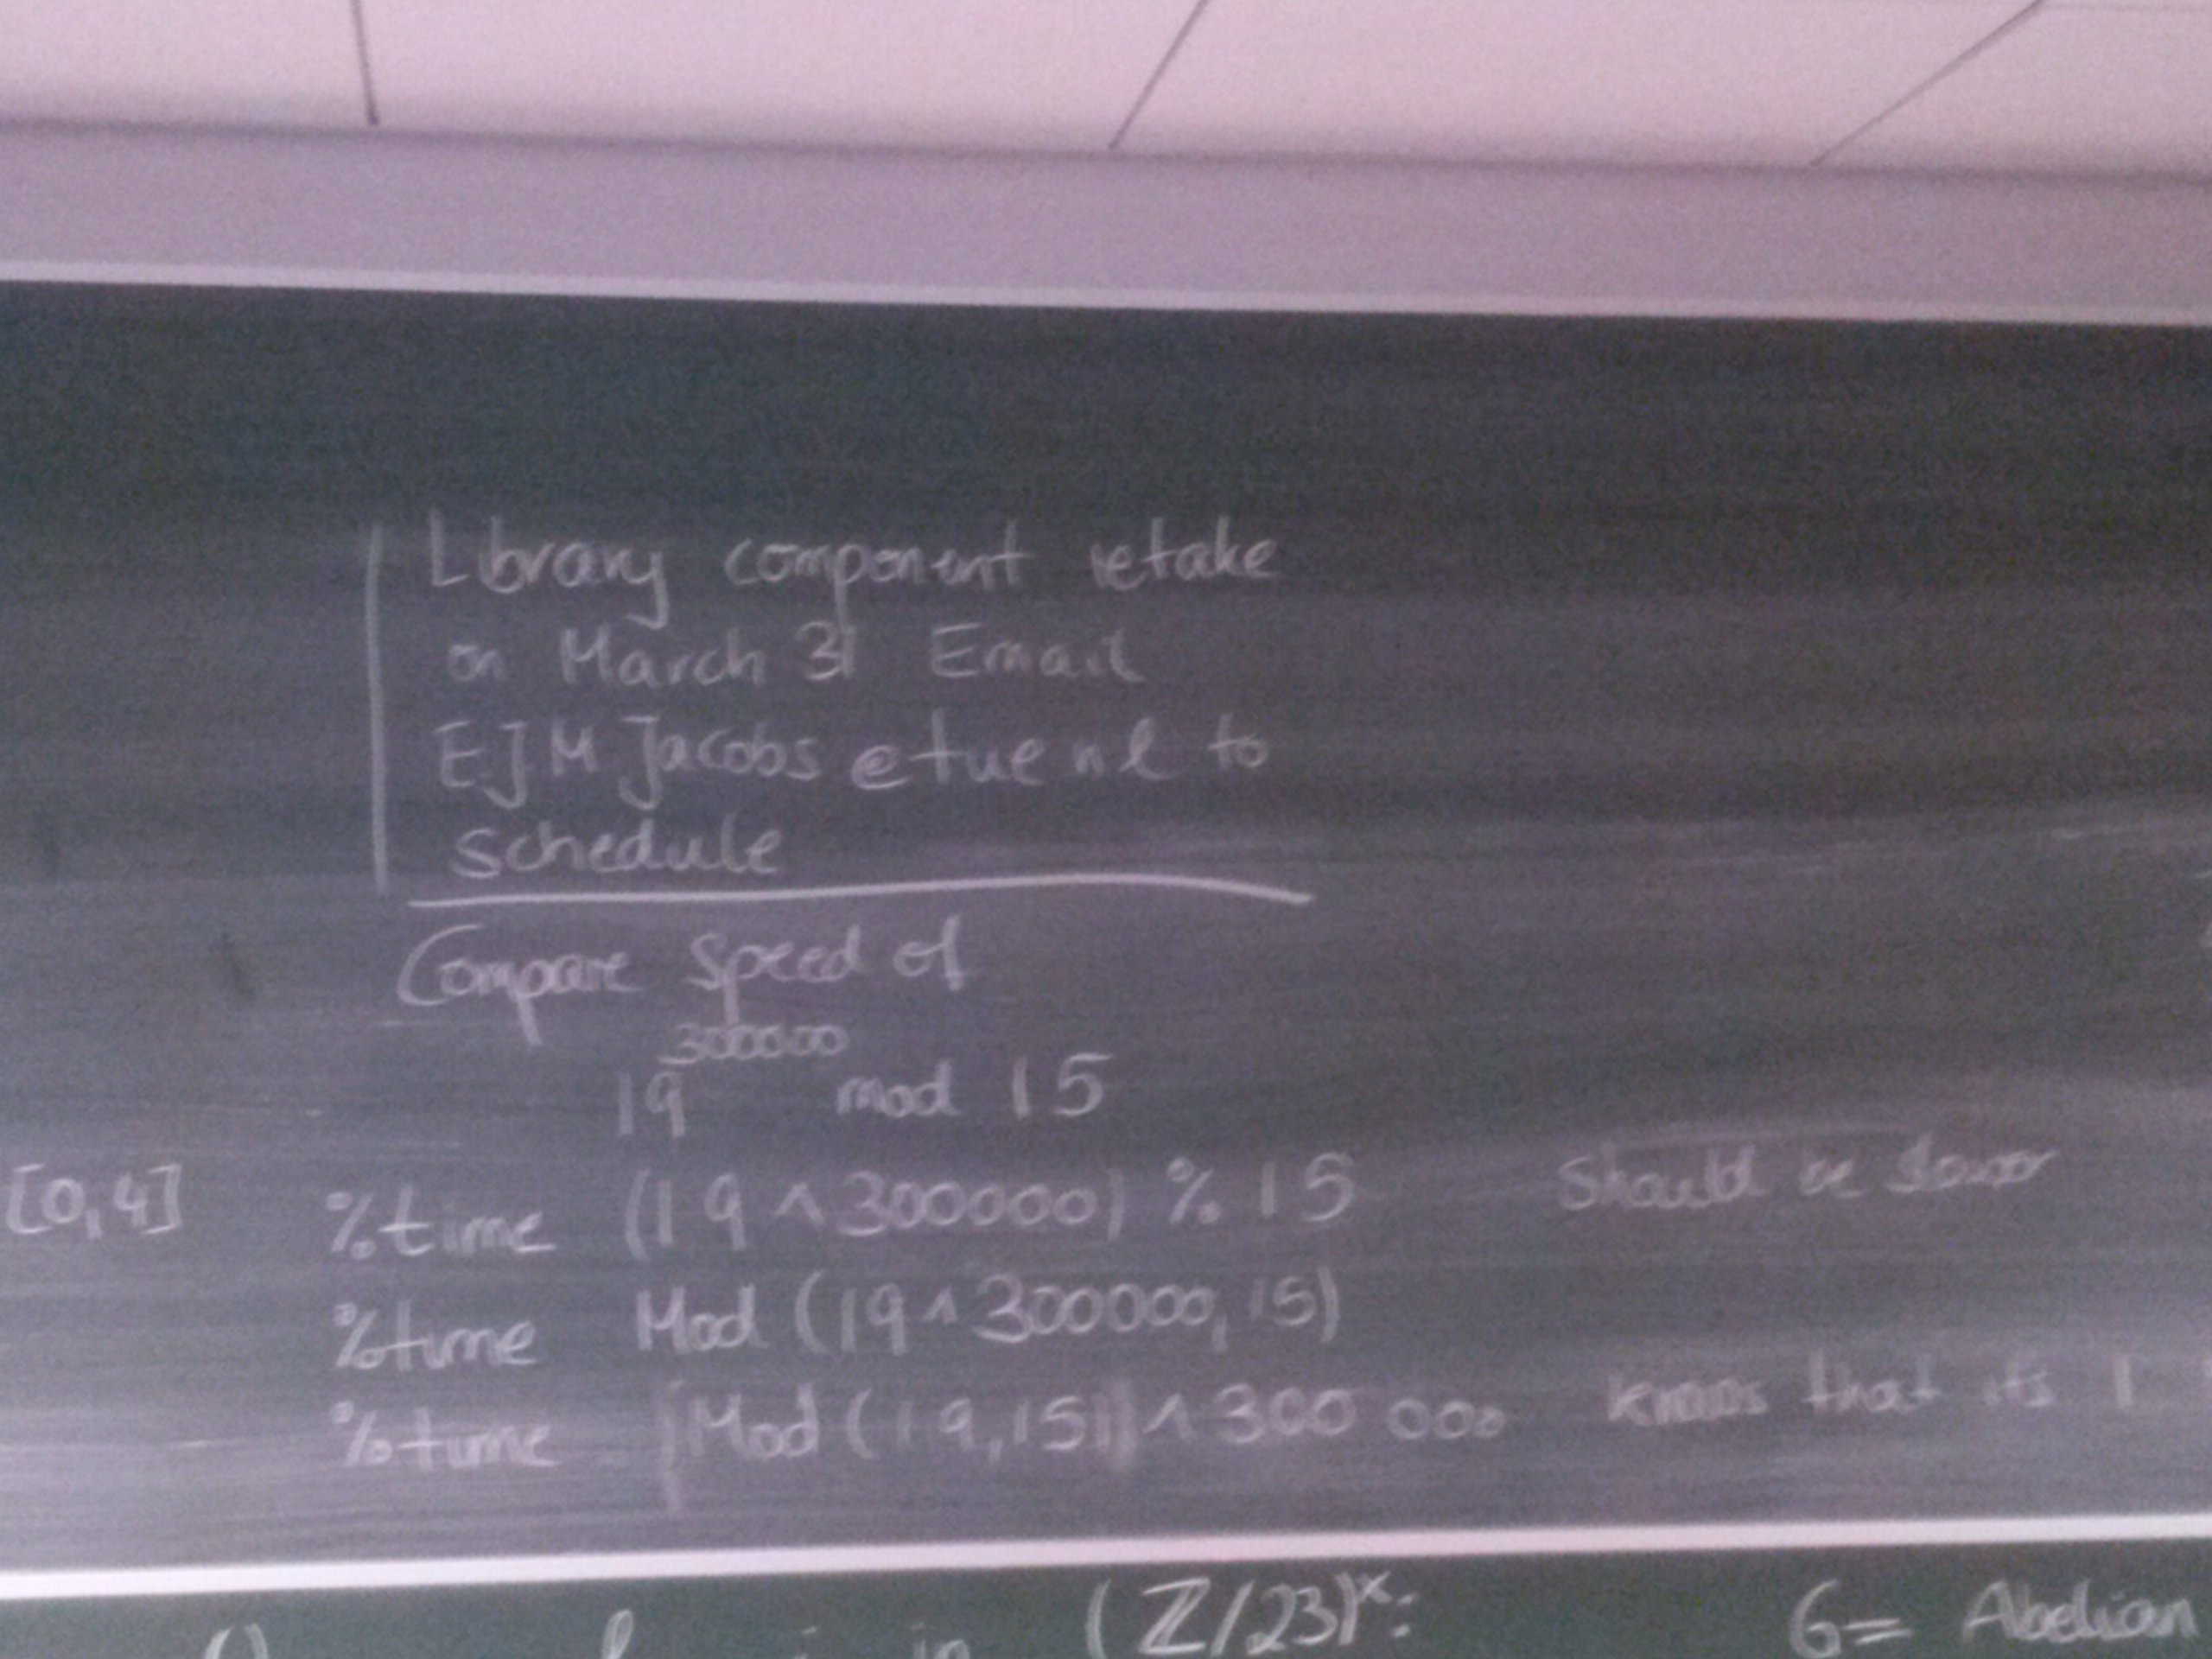 Library component retake
on March 31 Email
EJM Jacobs @tue nl to
schedule
Compare Speed of
19^300000 mod 15
[0,4] %time (19^300000) % 15 Should be slower
%time Mod (19^300000, 15)
%time (Mod (19,15))^300 000 knows that its 1
in (ℤ/23)^x:
G= Abelian